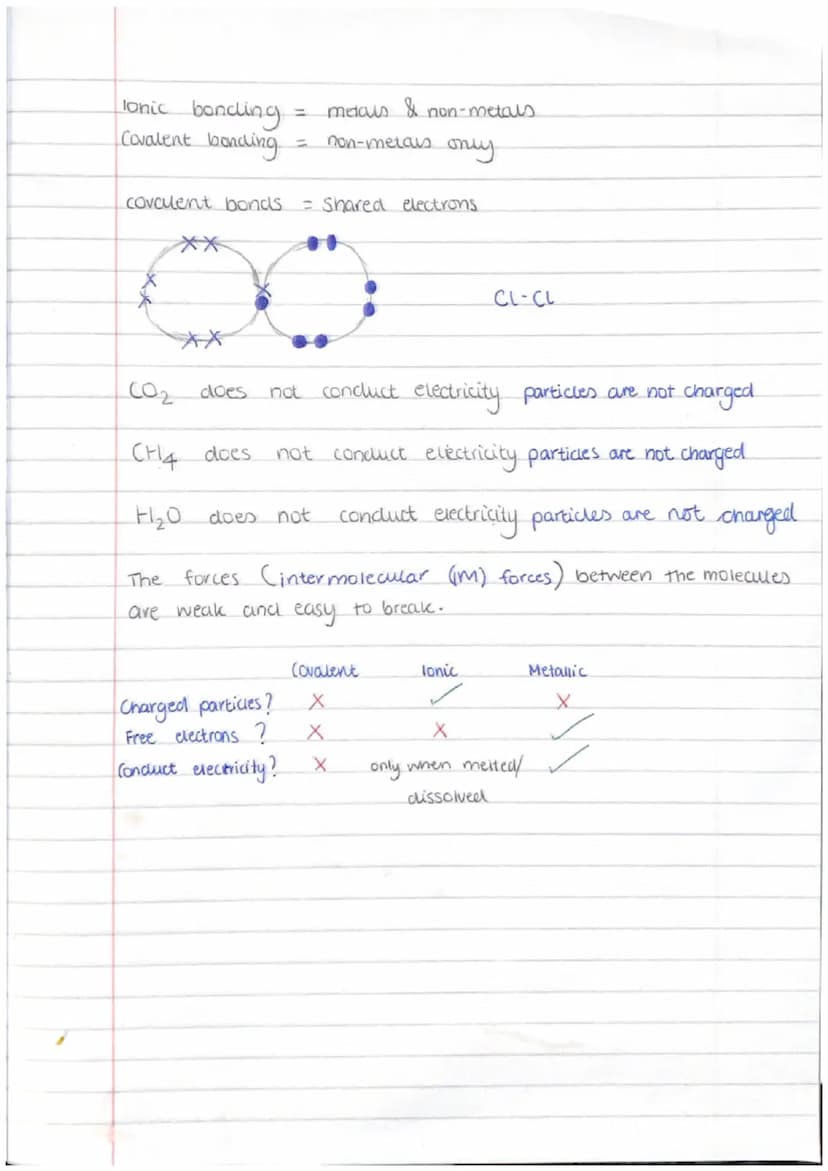 Ionic bonding = metals & non-metals
Covalent bonding = non-metals only
covalent bonds = Shared electrons
Cl-Cl
CO₂ does not conduct electricity particles are not charged
CH₄ does not conduct electricity particles are not charged
H₂O does not conduct electricity particles are not charged
The forces (intermolecular (IM) forces) between the molecules
are weak and easy to break.
Covalent Ionic Metallic
Charged particles? X ✓ X
Free electrons? X X ✓
Conduct electricity? X only when melted/ ✓
dissolved